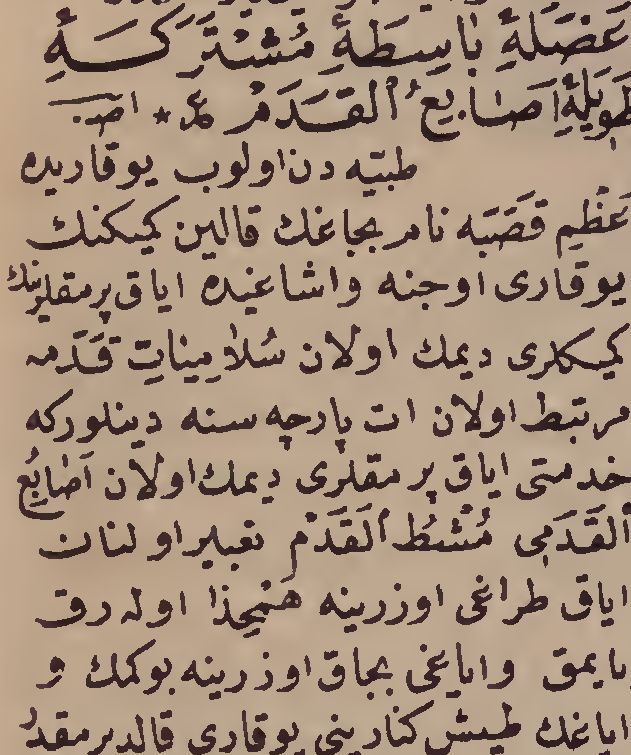 عَضَلَهِٔ بَاسِطَهِٔ مُشْتَرَكَهِٔ
طَوِيلَهِٔ اَصَابِعُ الْقَدَمْ
طبيه دن اولوب يوقاريده
عَظْمِ قَصَبَه نام بجاغك قالين كيكنك
يوقارى اوجنه واشاغيده اياق پرمقلرينك
كيكلرى ديمك اولان سُلَامِيَاتِ قَدَمه
مرتبط اولان ات پارچه سنه دينلوركه
خدمتى اياق پرمقلرى ديمك اولان اَصَابِعُ
الْقَدَمِى مُشْطُ الْقَدَمْ تعبير اولنان
اياق طراغى اوزرينه مُنْجِذاً اوله رق
يايمق واياغى بجاق اوزرينه بوكمك و
اياغك طيش كنارينى يوقارى قالديرمقدر